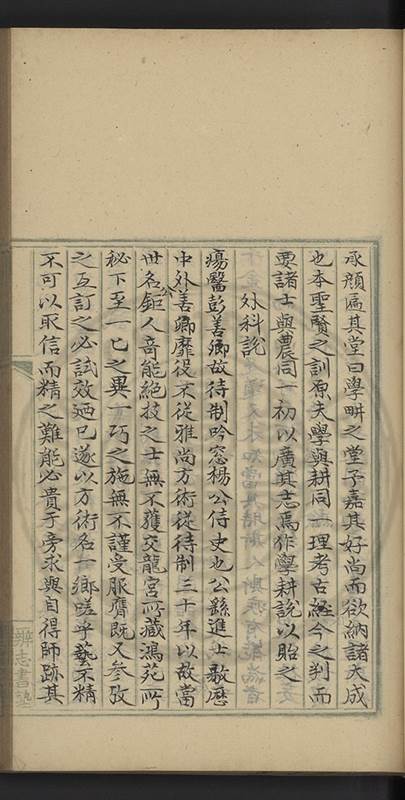 承顔扁其堂曰學畊之堂予嘉其好尚而欲納諸大成
也本聖賢之訓原夫學與耕同一理考古經今之判而
要諸士與農同一初以廣其志焉作學耕說以貽之
外科說
瘍醫彭善卿故待制吟窓楊公侍史也公繇進士敭歷
中外善卿靡役不從雅尚方術從待制三十年以故當
世名公鉅人奇能絕技之士無不獲交龍宮所藏鴻苑所
秘下至一匕之異一巧之施無不謹受服膺既又參攷
之互訂之必試效迺已遂以方術名一鄉嗟乎藝不精
不可以取信而精之難能必貴于旁求與自得師跡其
辨志書塾